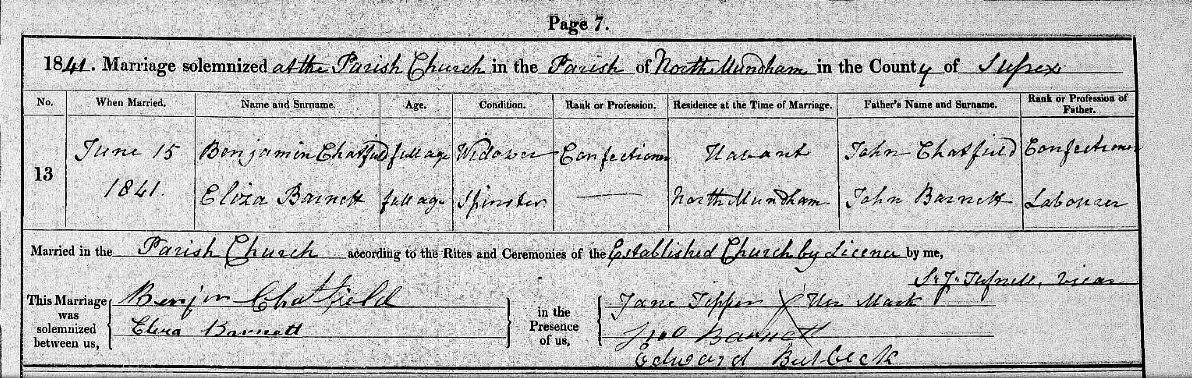 Page 7.
1841. Marriage solemnized at the Parish Church in the Parish of North Mundham in the County of Sussex
No. When Married. Name and Surname. Age. Condition. Rank or Profession. Residence at the Time of Marriage. Father's Name and Surname. Rank or Profession of Father.
13 June 15 Benjamin Chatfield full age Widower Confectioner Havant John Chatfield Confectioner
1841. Eliza Barnett full age Spinster North Mundham John Barnett Labourer
Married in the Parish Church according to the Rites and Ceremonies of the Established Church by Licence by me,
Tufnell, Vicar
This Marriage was solemnized between us, Benjn Chatfield
Eliza Barnett
in the Presence of us, Jane Tipper X Her Mark
Jno Barnett
Edward